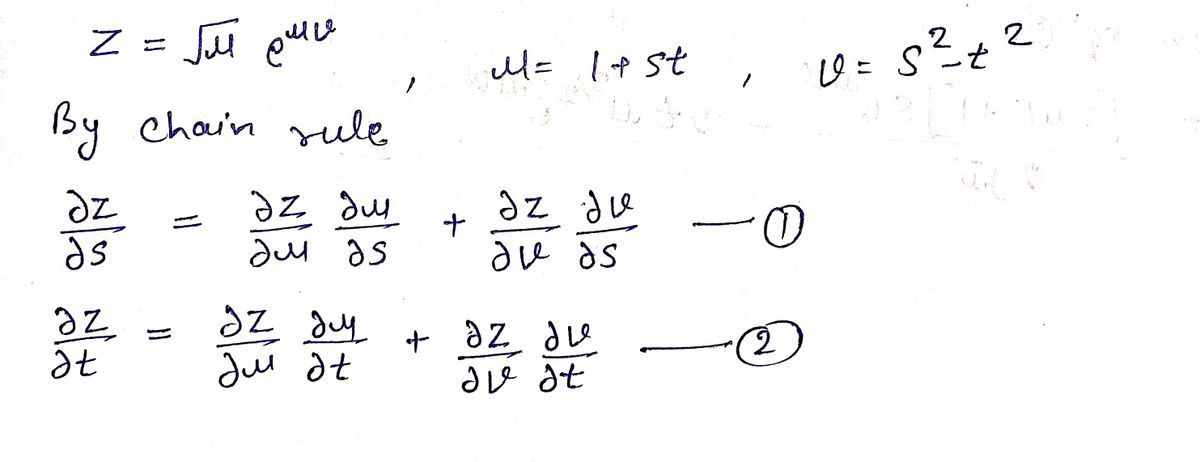 z = √u e^{uv} , u = 1 + st , v = s² - t²
By chain rule
∂z/∂s = ∂z/∂u ∂u/∂s + ∂z/∂v ∂v/∂s — ①
∂z/∂t = ∂z/∂u ∂u/∂t + ∂z/∂v ∂v/∂t — ②